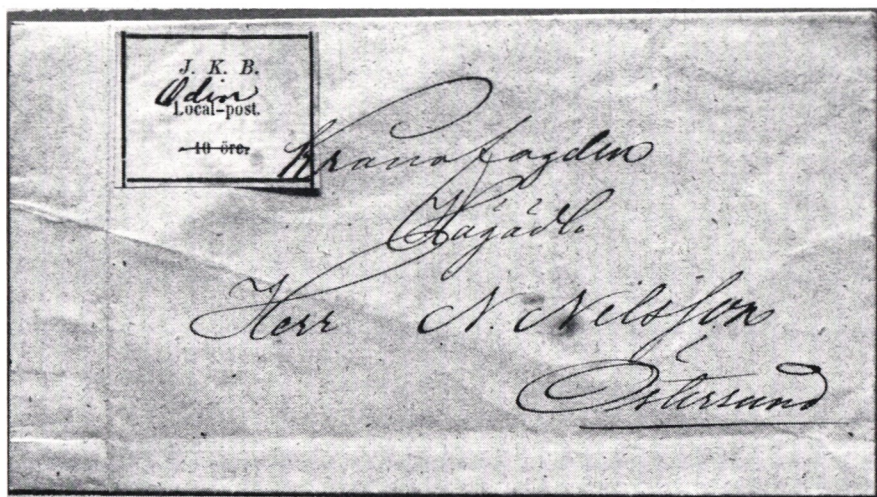 J. K. B.
Odin
Local-post.
10 öre.
Kronofogden
Högädl.
Herr N. Nilsson
i
Östersund